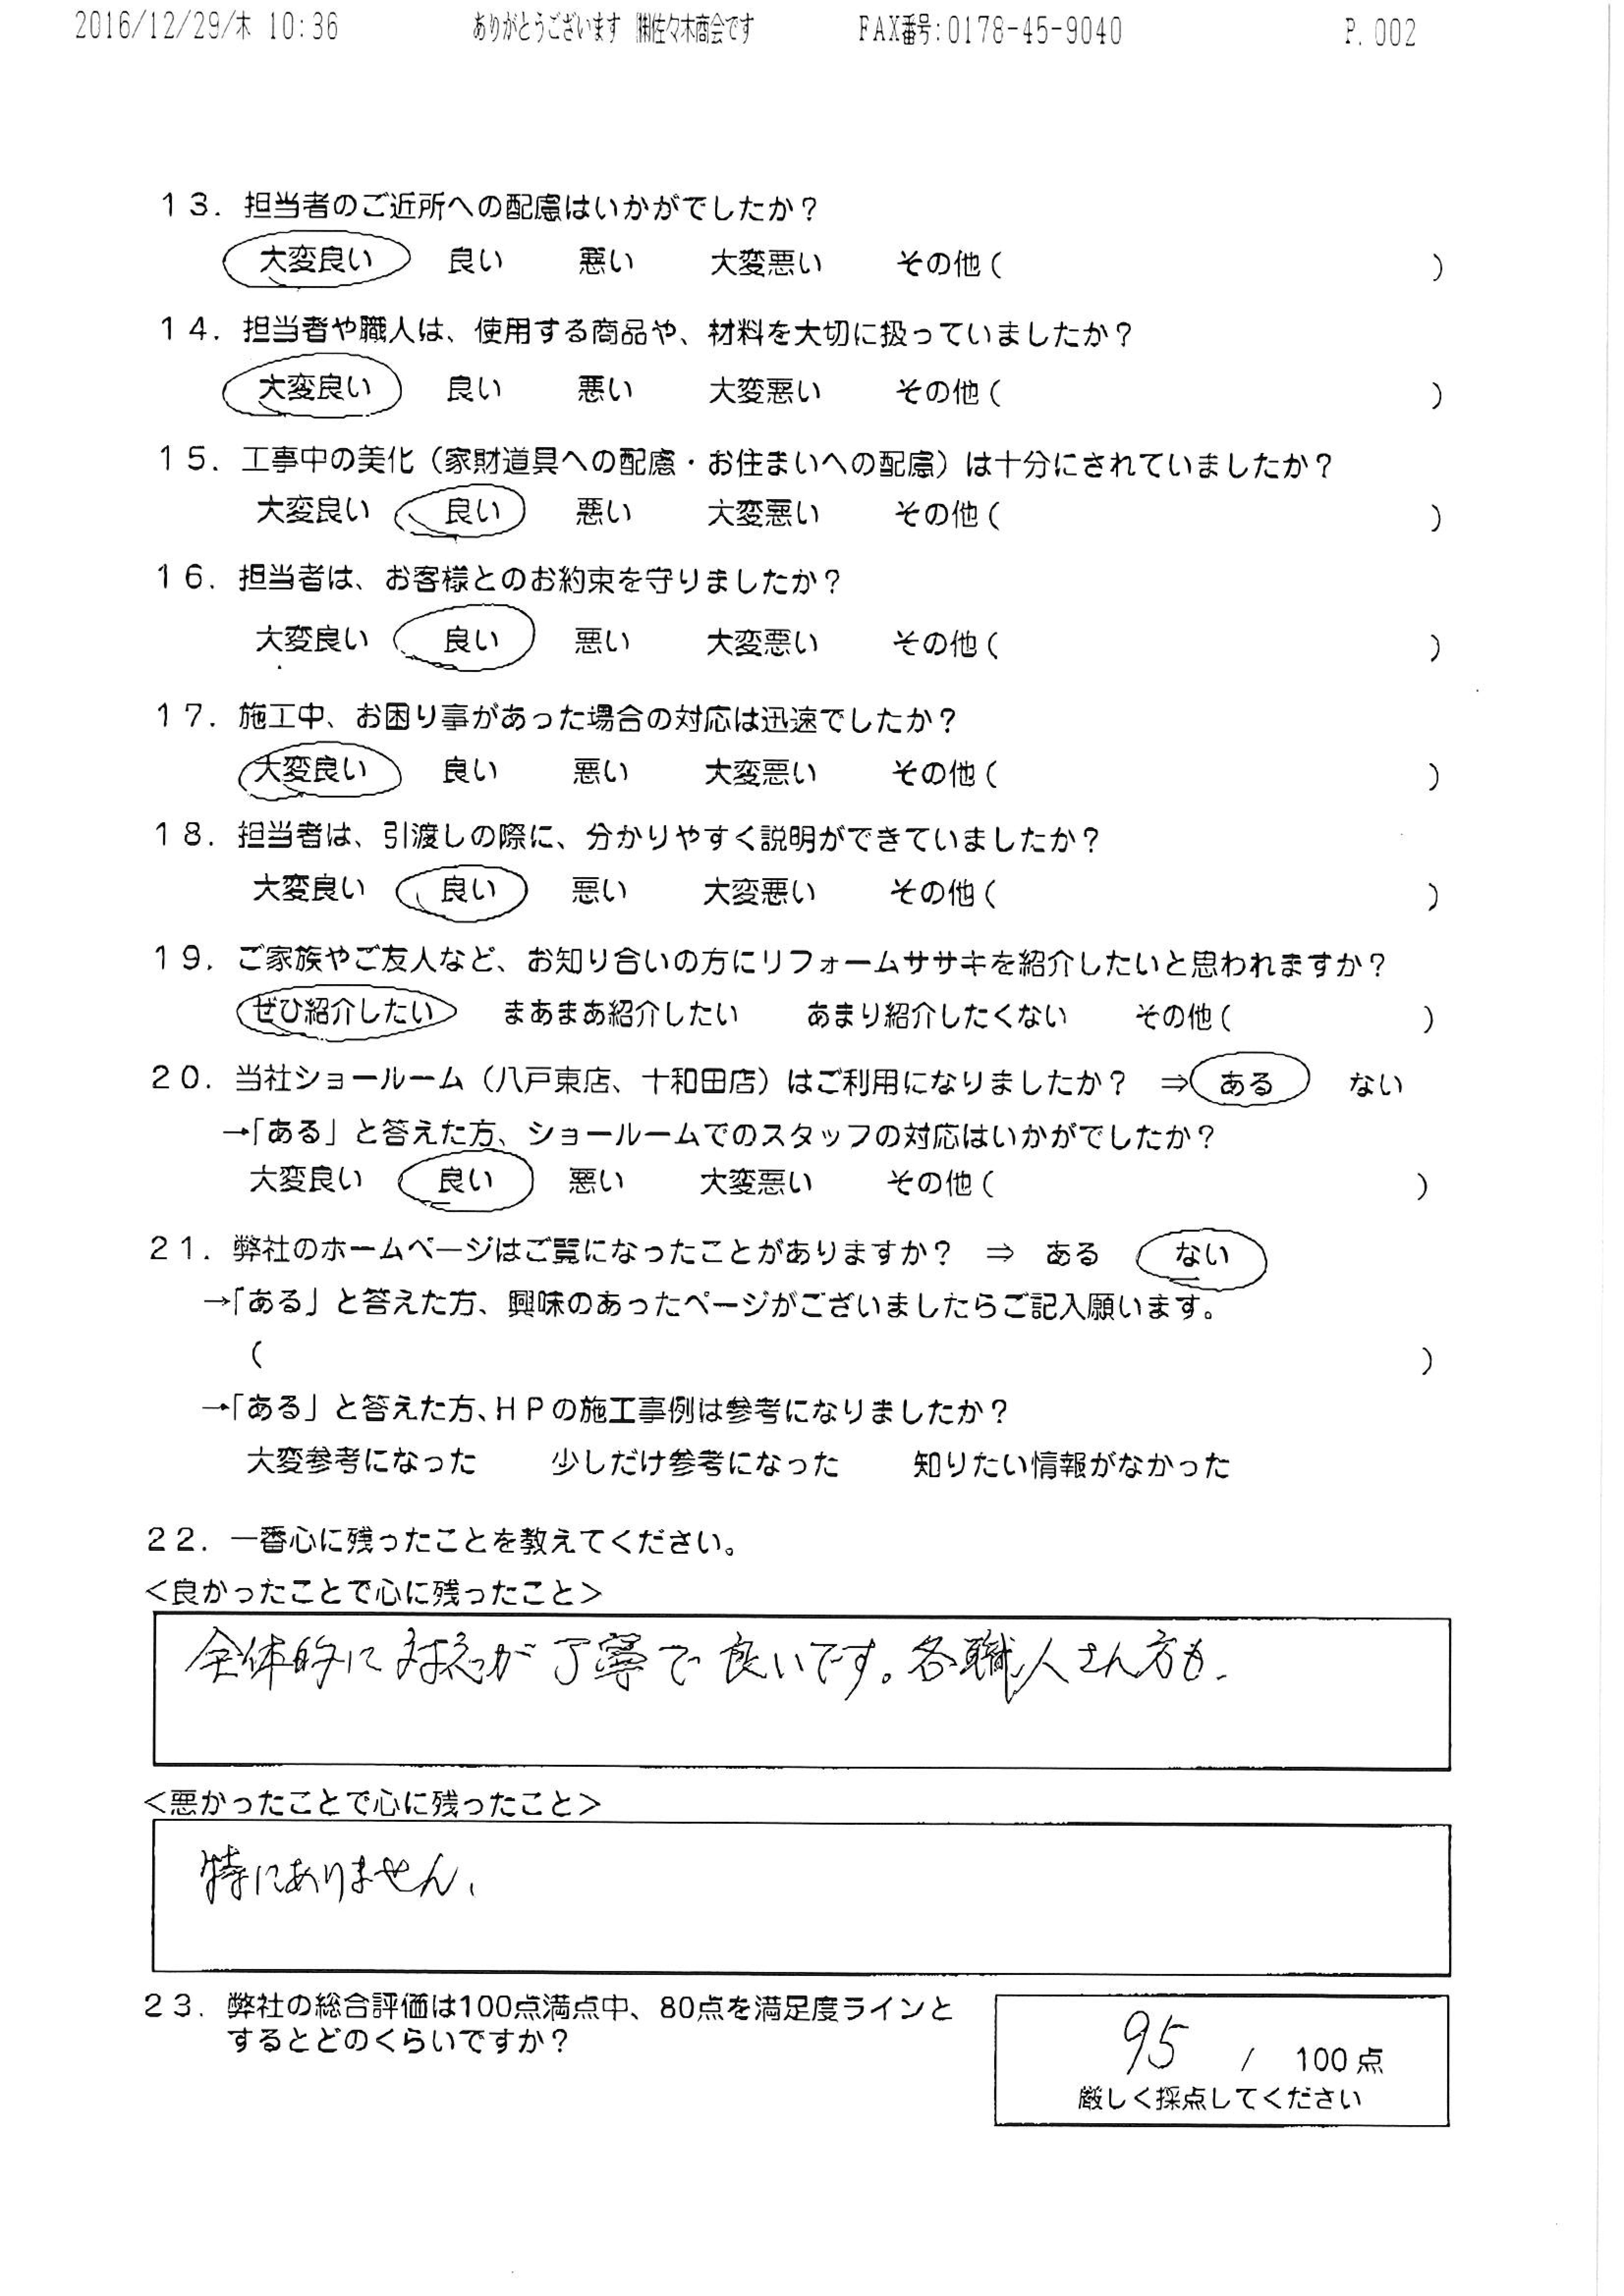 2016/12/29/木 10:36 ありがとうございます ㈱佐々木商会です FAX番号:0178-45-9040 P.002
13. 担当者のご近所への配慮はいかがでしたか？
大変良い 良い 悪い 大変悪い その他（ ）
14. 担当者や職人は、使用する商品や、材料を大切に扱っていましたか？
大変良い 良い 悪い 大変悪い その他（ ）
15. 工事中の美化（家財道具への配慮・お住まいへの配慮）は十分にされていましたか？
大変良い 良い 悪い 大変悪い その他（ ）
16. 担当者は、お客様とのお約束を守りましたか？
大変良い 良い 悪い 大変悪い その他（ ）
17. 施工中、お困り事があった場合の対応は迅速でしたか？
大変良い 良い 悪い 大変悪い その他（ ）
18. 担当者は、引渡しの際に、分かりやすく説明ができていましたか？
大変良い 良い 悪い 大変悪い その他（ ）
19. ご家族やご友人など、お知り合いの方にリフォームササキを紹介したいと思われますか？
ぜひ紹介したい まあまあ紹介したい あまり紹介したくない その他（ ）
20. 当社ショールーム（八戸東店、十和田店）はご利用になりましたか？ ⇒ ある ない
→「ある」と答えた方、ショールームでのスタッフの対応はいかがでしたか？
大変良い 良い 悪い 大変悪い その他（ ）
21. 弊社のホームページはご覧になったことがありますか？ ⇒ ある ない
→「ある」と答えた方、興味のあったページがございましたらご記入願います。
（ ）
→「ある」と答えた方、HPの施工事例は参考になりましたか？
大変参考になった 少しだけ参考になった 知りたい情報がなかった
22. 一番心に残ったことを教えてください。
＜良かったことで心に残ったこと＞
全体的に対応が丁寧で良いです。各職人さん方も。
＜悪かったことで心に残ったこと＞
特にありません。
23. 弊社の総合評価は100点満点中、80点を満足度ラインと
するとどのくらいですか？
95 / 100点
厳しく採点してください